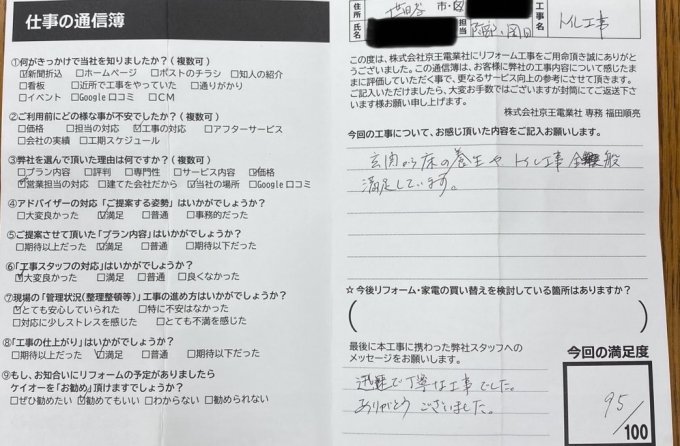 仕事の通信簿
①何がきっかけで当社を知りましたか？(複数可)
☑新聞折込 □ホームページ □ポストのチラシ □知人の紹介
□看板 □近所で工事をやっていた □通りがかり
□イベント □Google口コミ □CM
②ご利用前にどの様な事が不安でしたか？(複数可)
□価格 □担当の対応 ☑工事の対応 □アフターサービス
□会社の実績 □工期スケジュール
③弊社を選んで頂いた理由は何ですか？(複数可)
□プラン内容 □評判 □専門性 □サービス内容 ☑価格
☑営業担当の対応 □建てた会社だから ☑当社の場所 □Google口コミ
④アドバイザーの対応「ご提案する姿勢」はいかがでしょうか？
□大変良かった ☑満足 □普通 □事務的だった
⑤ご提案させて頂いた「プラン内容」はいかがでしょうか？
□期待以上だった ☑満足 □普通 □期待以下だった
⑥「工事スタッフの対応」はいかがでしょうか？
☑大変良かった □満足 □普通 □良くなかった
⑦現場の「管理状況(整理整頓等)」工事の進め方はいかがでしょうか？
☑とても安心していられた □特に不安はなかった
□対応に少しストレスを感じた □とても不満を感じた
⑧「工事の仕上がり」はいかがでしょうか？
□期待以上だった ☑満足 □普通 □期待以下だった
⑨もし、お知合いにリフォームの予定がありましたら
ケイオーを「お勧め」頂けますでしょうか？
□ぜひ勧めたい ☑勧めてもいい □わからない □勧められない
住所 世田谷 市・区
氏名 担当 岡田
工事名 トイレ工事
この度は、株式会社京王電業社にリフォーム工事をご用命頂き誠にありがと
うございました。この通信簿は、お客様に弊社の工事内容について感じたま
まに評価していただく事で、更なるサービス向上の参考にさせて頂きます。
ご記入いただけましたら、大変お手数ではございますが封筒にてご返送下さ
います様お願い申し上げます。
株式会社京王電業社 専務 福田順亮
今回の工事について、お感じ頂いた内容をご記入お願いします。
玄関から床の養生やトイレ工事全般
満足しています。
☆今後リフォーム・家電の買い替えを検討している箇所はありますか？
最後に本工事に携わった弊社スタッフへの
メッセージをお願いします。
迅速で丁寧な工事でした。
ありがとうございました。
今回の満足度
95
/100